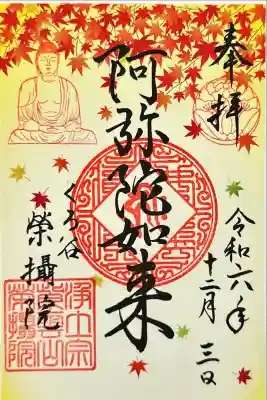 奉拝
令和六年
十二月 三日
阿弥陀如来
くろ谷
榮攝院
浄土宗
栄摂院